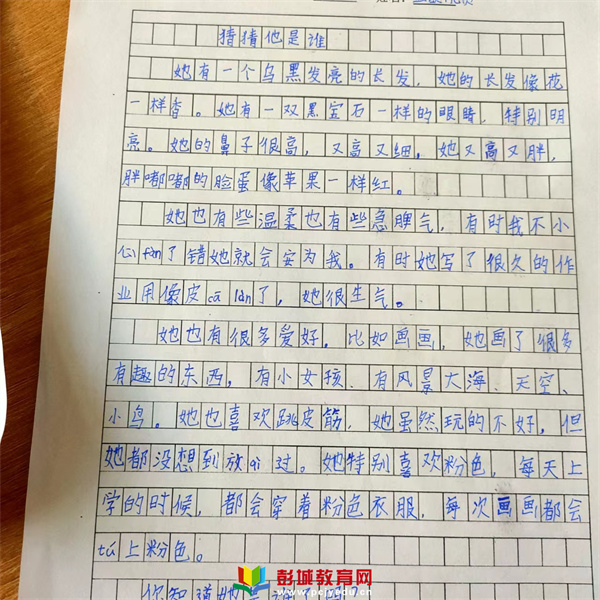 猜猜他是谁
她有一个乌黑发亮的长发，她的长发像花
一样香。她有一双黑宝石一样的眼睛，特别明
亮。她的鼻子很高，又高又细。她又高又胖，
胖嘟嘟的脸蛋像苹果一样红。
她也有些温柔也有些急脾气，有时我不小
心fàn了错她就会安为我。有时她写了很久的作
业用像皮cā làn了，她很生气。
她也有很多爱好。比如画画，她画了很多
有趣的东西，有小女孩、有风景大海、天空、
小鸟。她也喜欢跳皮筋，她虽然玩的不好，但
她都没想到放qì过。她特别喜欢粉色，每天上
学的时候，都会穿着粉色衣服，每次画画都会
tú上粉色。
你知道她是谁
彭城教育网
www.pcjyedu.cn